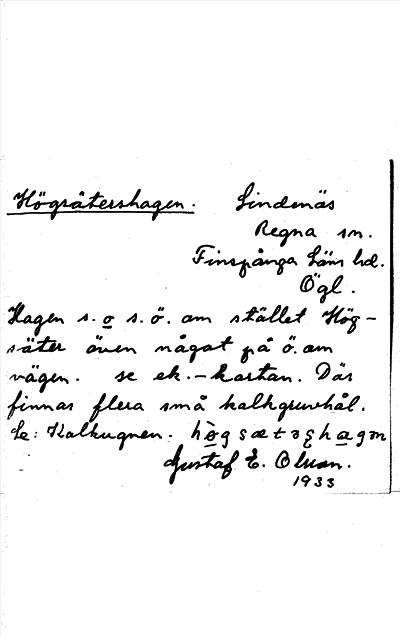 Högsätershagen. Lindenäs
Regna sn.
Finspånga läns hd.
Ögl.
Hagen s. o s. ö. om stället Hög-
säter även något på ö. om
vägen. se ek.-kartan. Där
finnas flera små kalkgruvhål.
Se: Kalkugnen.
Gustaf E. Olsson.
1933